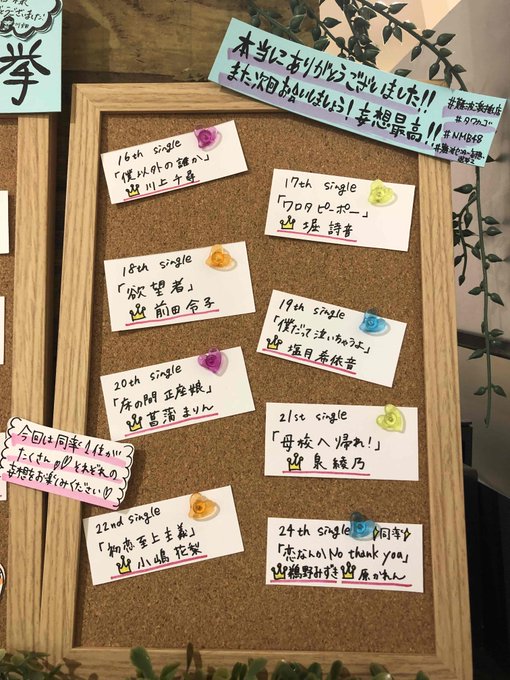 挙
本当にありがとうございました!!
また次回お会いしましょう! 妄想最高!!
#難波楽担店
#タワヲコ
#NMB48
16th single
「僕以外の誰か」
川上千尋
17th single
「ワロタピーポー」
堀 詩音
18th single
「欲望者」
前田令子
19th single
「僕だって泣いちゃうよ」
塩月希依音
20th single
「床の間正座娘」
菖蒲まりん
21st single
「母校へ帰れ!」
泉 綾乃
今回は同率1位が
たくさん♡♡ それぞれの
妄想をお楽しみください♡
22nd single
「初恋至上主義」
小嶋花梨
24th single 同率
「恋なんかNo thank you」
鵜野みずき 原かれん